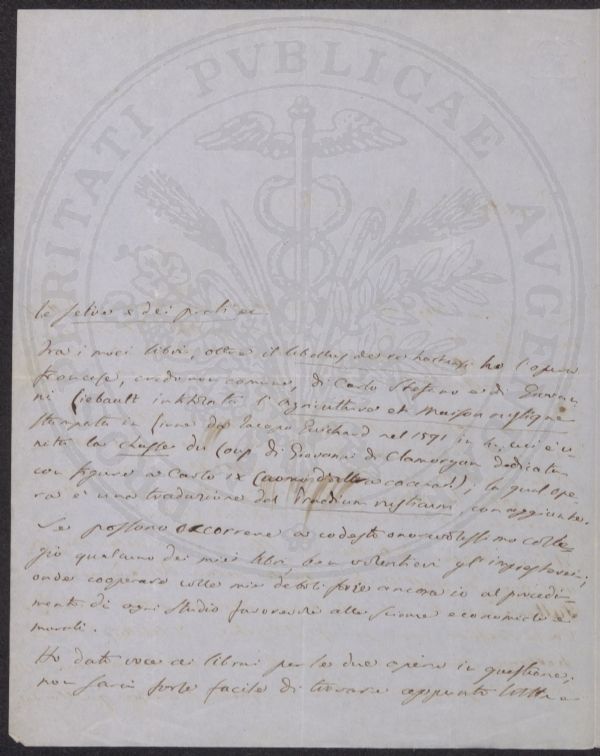 PROSPERITATI PVBLICAE AVGENDAE
le selve e dei prati ec.
Tra i miei libri, oltre il libellus de re hortensi ho l'opera
francese, credo non comune, di Carlo Stefano e di Giovan
ni Liebault intitolata l'Agriculture et Maison rustique
stampata in Lione da Jacopo Guichard nel 1591 in 4., cui è u
nita la chasse du Loup di Giovanni di Clamorgan dedicata
con figure a Carlo IX (uomo d'altra caccia!), la qual ope
ra è una traduzione del Praedium rusticum, con aggiunte.
Se possono occorrere a codesto onorevolissimo colle
gio qualcuno dei miei libri ben volentieri gl'impresterei;
onde cooperare colle mie deboli forze ancora io al procedi
mento di ogni studio favorevole alle scienze economiche e
morali.
Ho dato voce ai librai per le due opere in questione;
non sarà forse facile di trovare appunto